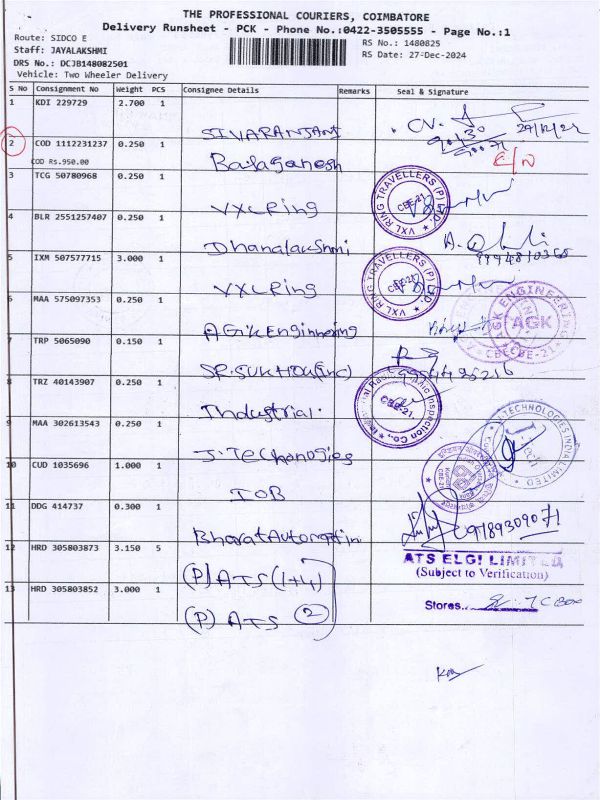 THE PROFESSIONAL COURIERS, COIMBATORE
Delivery Runsheet - PCK - Phone No.:0422-3505555 - Page No.:1
Route: SIDCO E
RS No.: 1480825
Staff: JAYALAKSHMI
RS Date: 27-Dec-2024
DRS No.: DCJB148082501
Vehicle: Two Wheeler Delivery
S No Consignment No Weight PCS Consignee Details Remarks Seal & Signature
1 KDI 229729 2.700 1 SIVARANJANI
27/12/24
2 COD 1112231237 0.250 1 Balaganesh E/N
COD Rs.950.00
3 TCG 50780968 0.250 1 VXL Ring
VXL RING TRAVELLERS (P) LTD. CBE-21
4 BLR 2551257407 0.250 1 Dhanalakshmi
5 IXM 507577715 3.000 1 VXL Ring
VXL RING TRAVELLERS (P) LTD. CBE-21
6 MAA 575097353 0.250 1 AGK Enginnering
AGK ENGINEERING AGK CBE-21
7 TRP 5065090 0.150 1
8 TRZ 40143907 0.250 1 Industrial.
Inspection Co., CBE-21
9 MAA 302613543 0.250 1 J. Technologies
TECHNOLOGIES INDIA LIMITED
10 CUD 1035696 1.000 1 IOB
11 DDG 414737 0.300 1 Bharat Automation
9789309071
12 HRD 305803873 3.150 5 (P) ATS (1+4)
ATS ELGI LIMITED
(Subject to Verification)
13 HRD 305803852 3.000 1 (P) ATS 2
Stores..